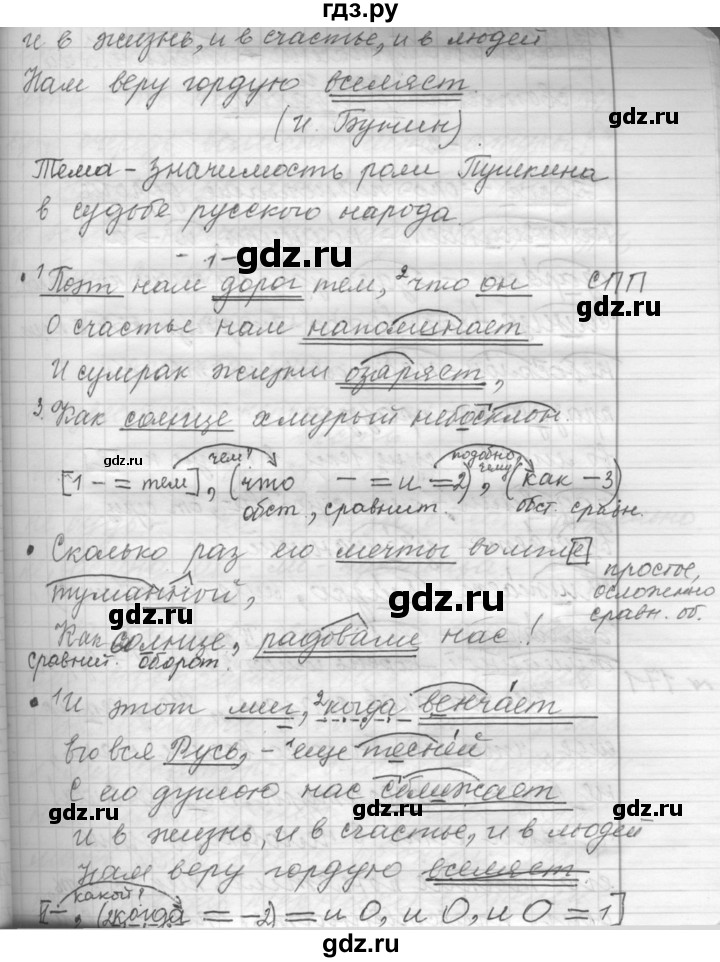 гдз.ру
и в жизнь, и в счастье, и в людей
Нам веру гордую вселяет.
(И. Бунин)
Тема - значимость роли Пушкина
в судьбе русского народа.
- 1 -
• 1 Поэт нам дорог тем, 2 что он СПП
О счастье нам напоминает
И сумрак жизни озаряет,
3. Как солнце хмурый небосклон.
чем? подобно чему?
[1 - = тем], (что - = и = 2), (как - 3)
обст. сравнит. обст. сравн.
• Сколько раз его мечты в
туманный,
простое,
осложнено
сравн. об.
Как солнце, радовали нас!
сравнит. оборот.
• 1 И этот миг, 2 когда венчает
его вся Русь, - 1 еще тесней
С его душою нас сближает
и в жизнь, и в счастье, и в людей
Нам веру гордую вселяет.
какой?
[-, (2 когда = - 2) = и О, и О, и О = 1]
gdz.ru
gdz.ru
gdz.ru
gdz.ru
gdz.ru
gdz.ru
gdz.ru
gdz.ru
gdz.ru
gdz.ru
gdz.ru
gdz.ru
gdz.ru
гдз.ру